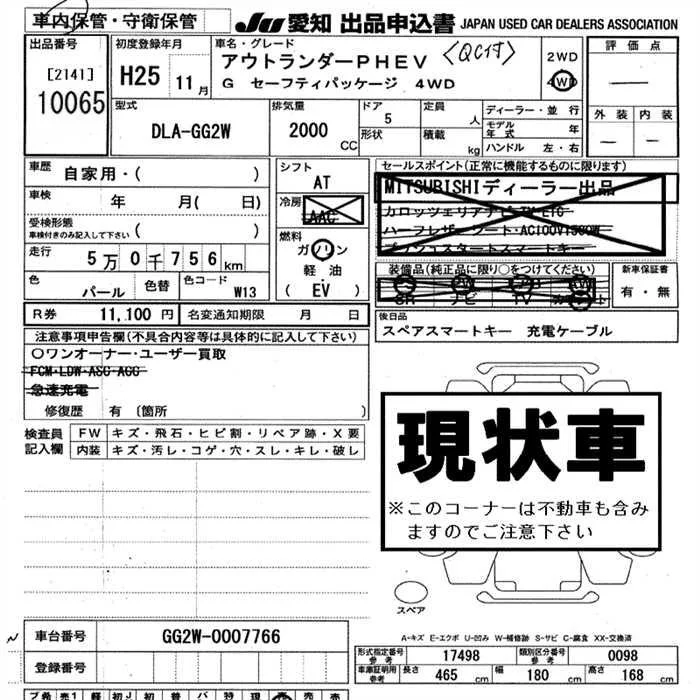 車内保管・守衛保管
JU 愛知 出品申込書 JAPAN USED CAR DEALERS ASSOCIATION
出品番号
[2141]
10065
初度登録年月
H25 11月
車名・グレード
アウトランダーPHEV 〈QC付〉
G セーフティパッケージ 4WD
2WD
4WD
評価点
―
外装 内装
― ―
型式
DLA-GG2W
排気量
2000 CC
ドア
5
形状
定員 人
積載 kg
ディーラー・並行
モデル年式 年
ハンドル 左・右
車歴 自家用・( )
車検 年 月( 日)
受検形態
車検付きのみ記入して下さい ( )
走行 5万0千756km
色 パール 色替 色コード W13
シフト
AT
冷房
AAC
燃料
ガソリン
軽油
( EV )
セールスポイント(正常に機能するものに限ります)
MITSUBISHIディーラー出品
カロッツェリアナビ・TV・ETC
ハーフレザーシート・AC100V1500W
プッシュスタートスマートキー
装備品(純正品に限り○をつけてください)
SR ナビ TV
新車保証書
有・無
R券 11,100円 名変通知期限 月 日
後日品
スペアスマートキー 充電ケーブル
注意事項申告欄(不具合内容等は具体的に記入して下さい)
○ワンオーナー・ユーザー買取
FCM・LDW・ASC・ACC
急速充電
修復歴 有 〔箇所 〕
検査員記入欄
FW キズ・飛石・ヒビ割・リペア跡・X要
内装 キズ・汚レ・コゲ・穴・スレ・キレ・破レ
現状車
※このコーナーは不動車も含み
ますのでご注意下さい
スペア
A-キズ E-エクボ U-凹み W-補修跡 S-サビ C-腐食 XX-交換済
車台番号 GG2W-0007766
登録番号
形式指定番号 参考 17498 類別区分番号 参考 0098
車庫証明用 参考 長さ 465 cm 幅 180 cm 高さ 168 cm